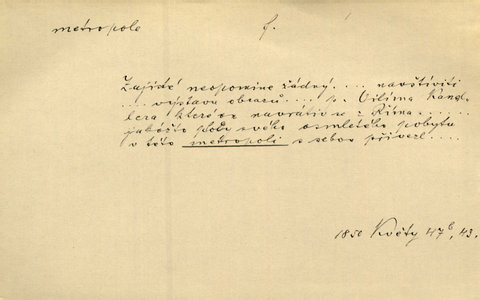 metropole f.
Zajisté neopomine žádný .... navštíviti
... výstavu obrazů .... p. Viléma Kand-
lera které on navrátiv se z Říma ......
jakožto plody svého osmiletého pobytu
v této metropoli s sebou přivezl ....
1850 Květy 47b, 43.